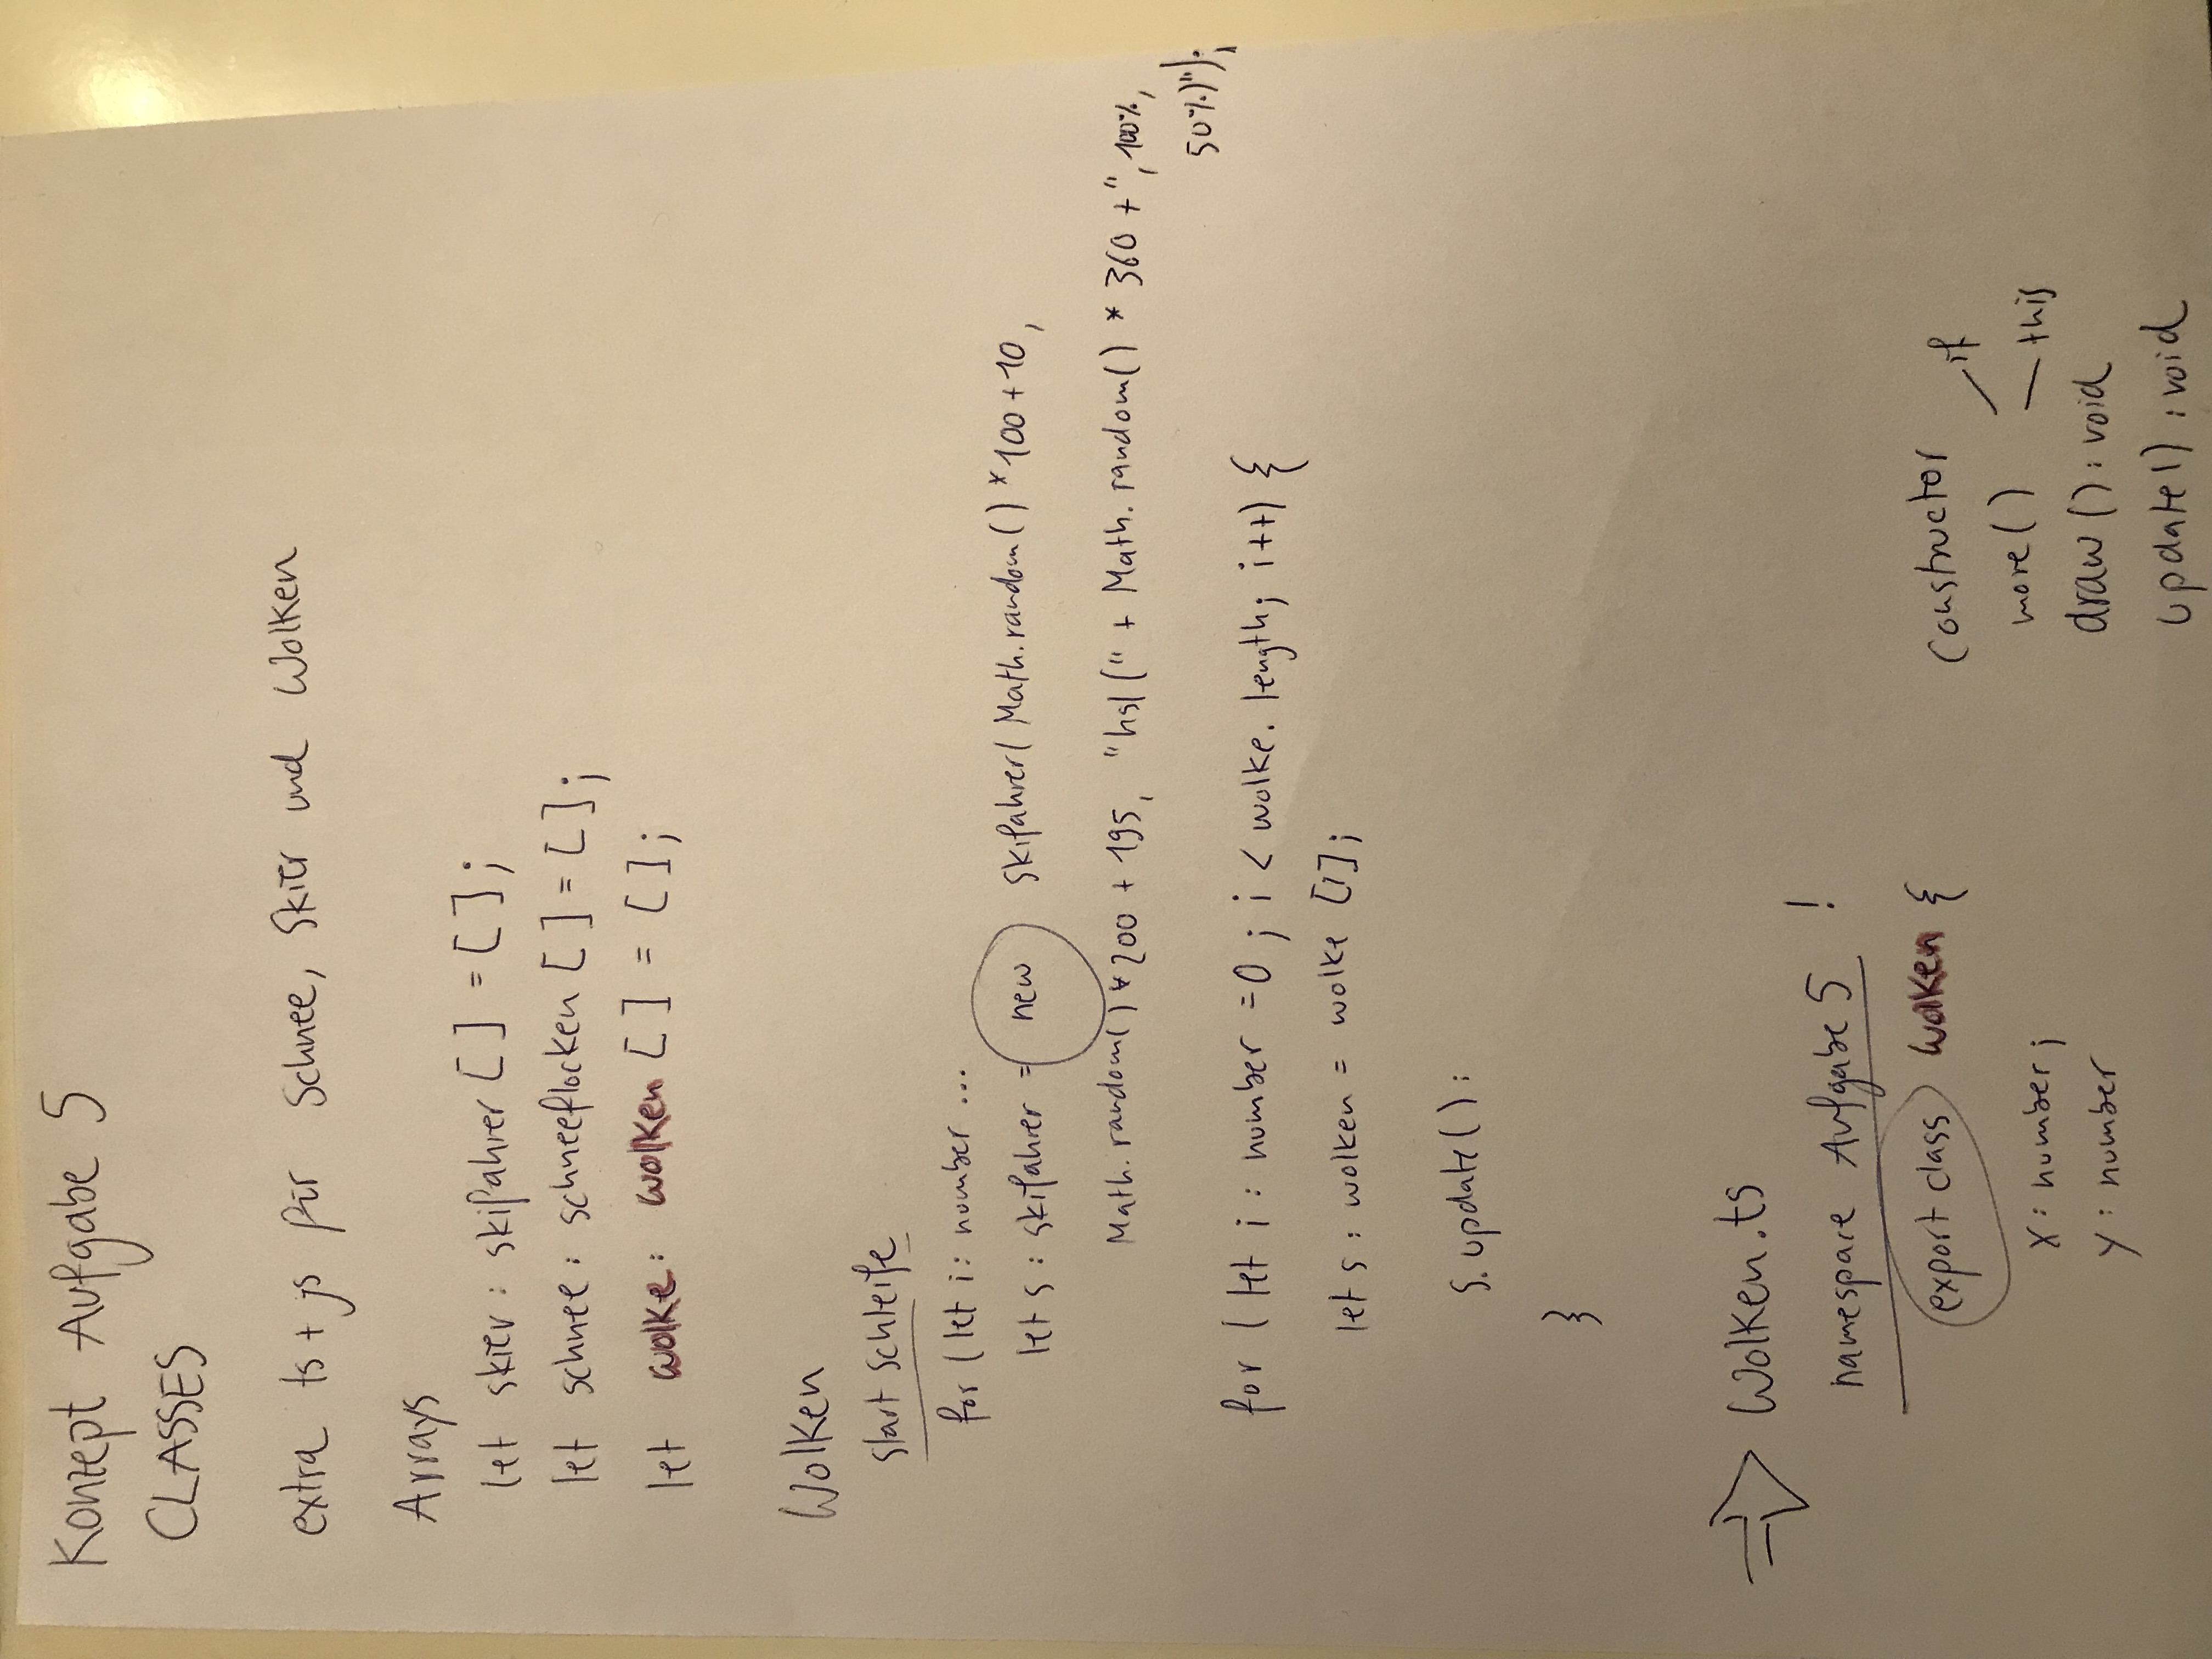 Konzept Aufgabe 5
CLASSES
extra ts + js für Schnee, Skier und Wolken
Arrays
let skier : skifahrer [ ] = [ ];
let schnee : schneeflocken [ ] = [ ];
let wolke : wolken [ ] = [ ];
Wolken
start schleife
for ( let i : number ...
let s : skifahrer = new skifahrer( Math.random() * 100 + 10,
Math.random() * 200 + 195, "hsl(" + Math.random() * 360 + ", 100%,
50%)");
for ( let i : number = 0 ; i < wolke. length; i++) {
let s : wolken = wolke [i];
s.update() :
}
⇒ Wolken.ts
namespace Aufgabe 5 !
export class wolken {
x : number ;
y : number
Constructor
move() — if — this
draw () : void
update() : void